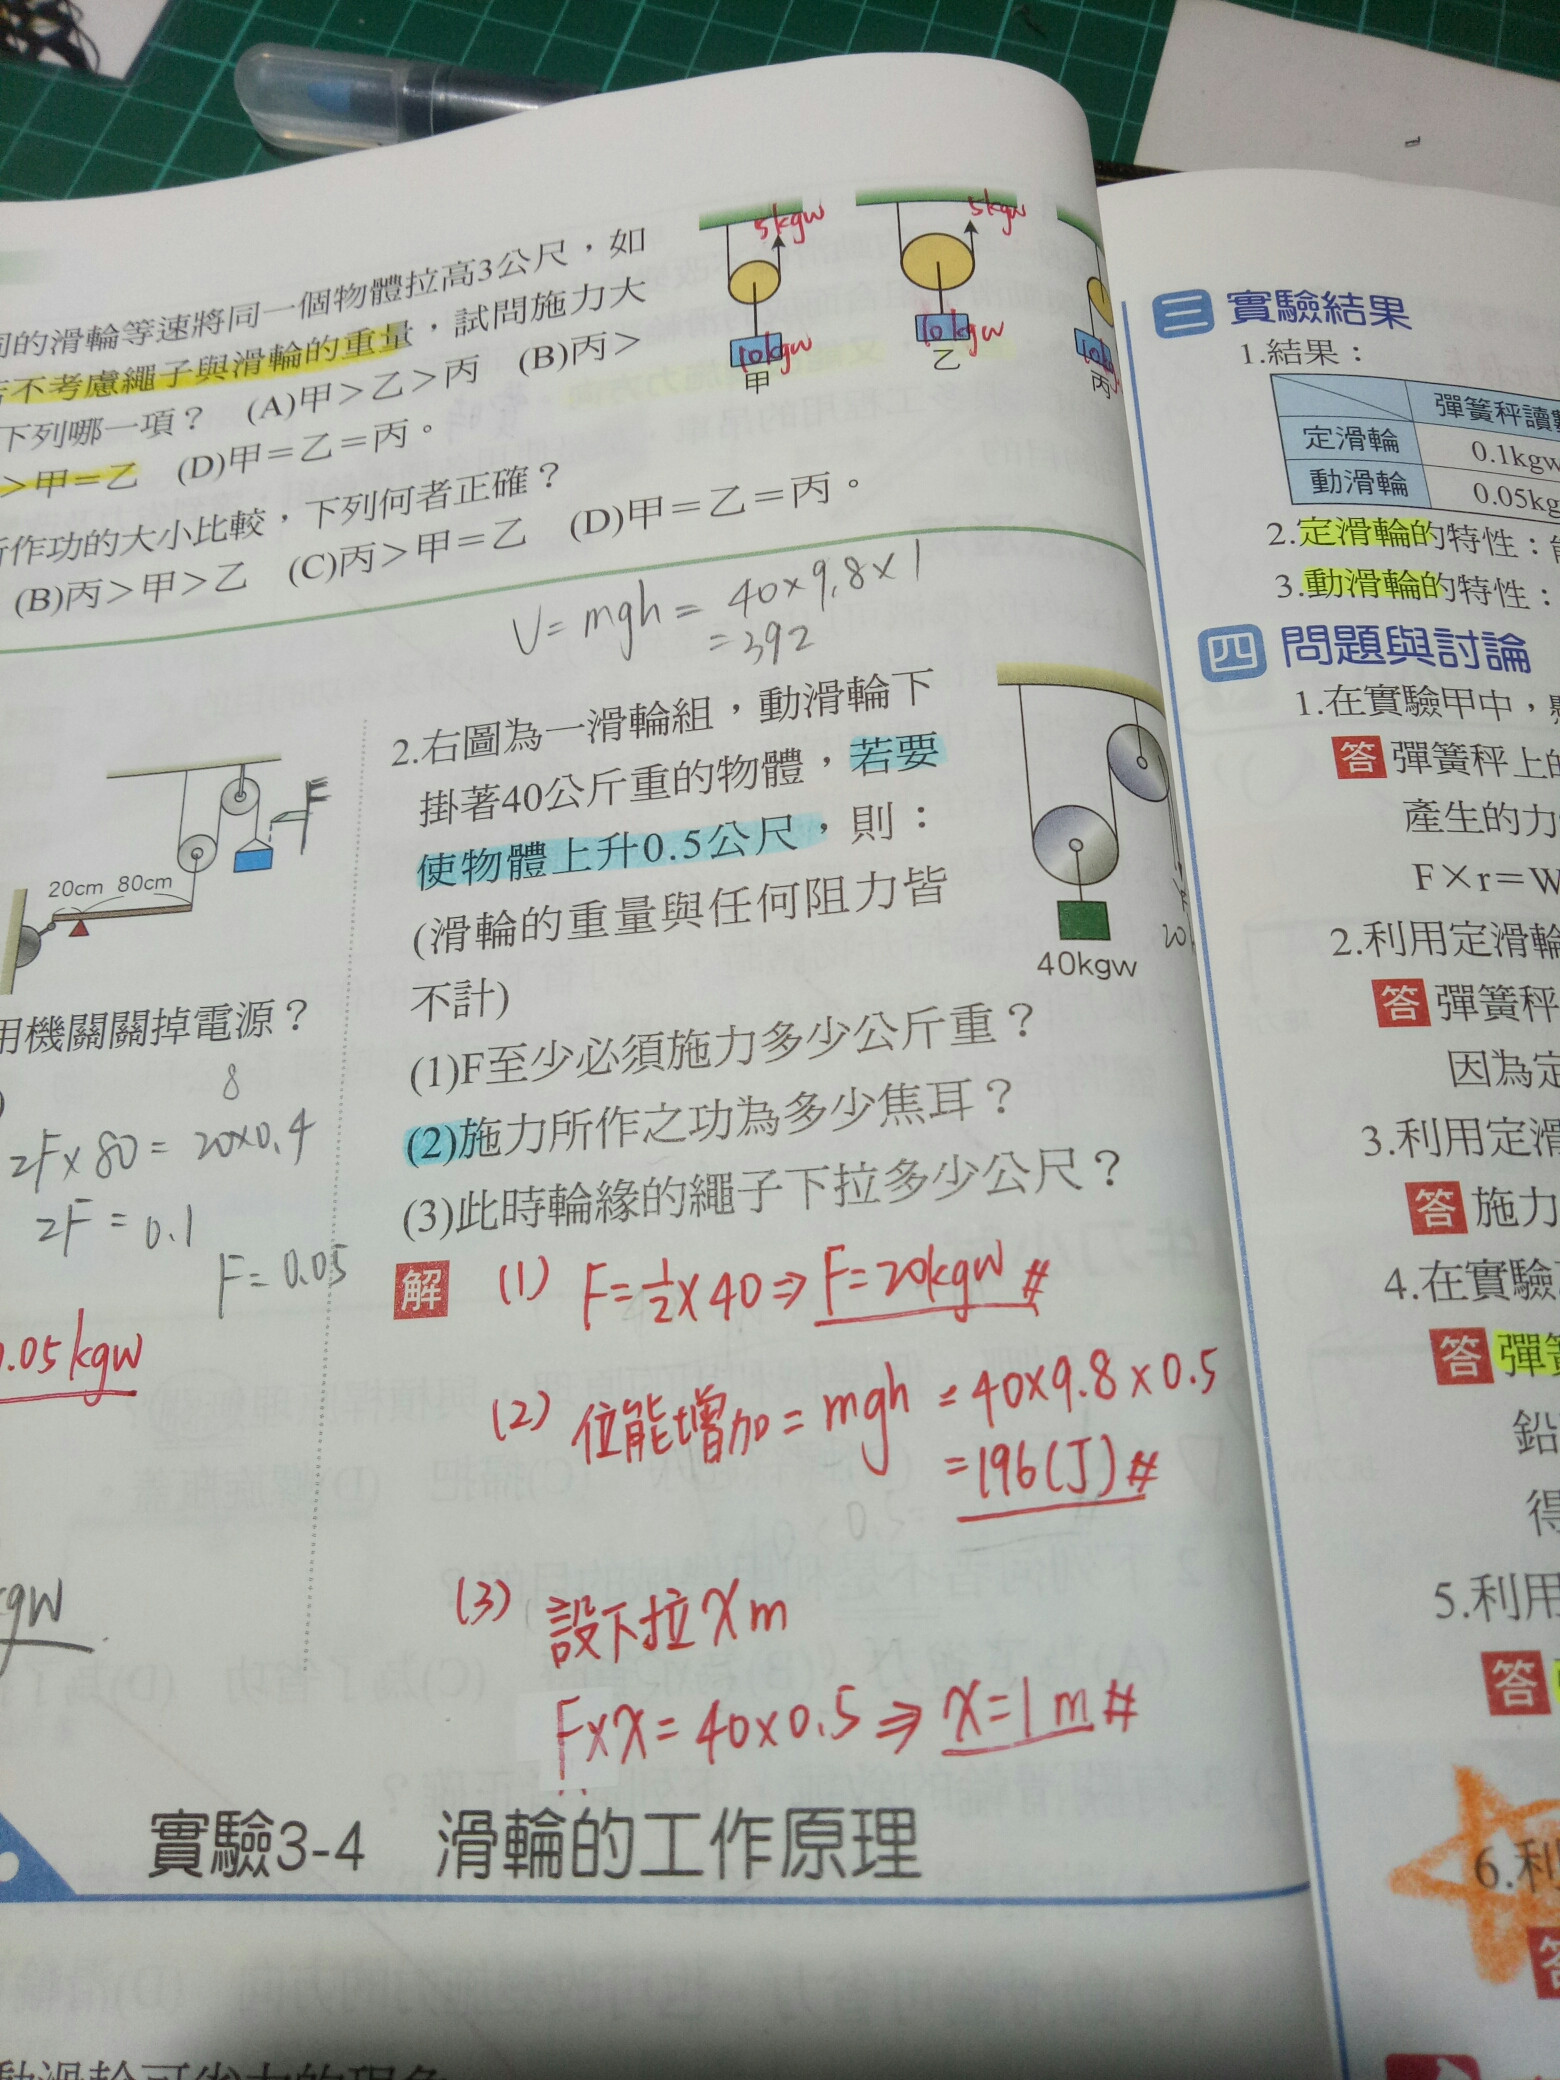 同的滑輪等速將同一個物體拉高3公尺，如
不考慮繩子與滑輪的重量，試問施力大
下列哪一項？ (A)甲＞乙＞丙 (B)丙＞
＞甲＝乙 (D)甲＝乙＝丙。
所作功的大小比較，下列何者正確？
(B)丙＞甲＞乙 (C)丙＞甲＝乙 (D)甲＝乙＝丙。
5kgw
10kgw
甲
5kgw
10kgw
乙
丙
U = mgh = 40×9.8×1
=392
F
20cm 80cm
用機關關掉電源？
8
2F×80 = 20×0.4
2F = 0.1
F = 0.05
0.05kgw
kgw
2.右圖為一滑輪組，動滑輪下
掛著40公斤重的物體，若要
使物體上升0.5公尺，則：
(滑輪的重量與任何阻力皆
不計)
40kgw
20
(1)F至少必須施力多少公斤重？
(2)施力所作之功為多少焦耳？
(3)此時輪緣的繩子下拉多少公尺？
解 (1) F=½×40⇒F=20kgw #
(2) 位能增加 = mgh = 40×9.8×0.5
=196(J)#
(3) 設下拉 x m
F×x = 40×0.5 ⇒ x=1 m #
實驗3-4 滑輪的工作原理
三 實驗結果
1.結果：
彈簧秤讀
定滑輪 0.1kgw
動滑輪 0.05kg
2.定滑輪的特性：
3.動滑輪的特性：
四 問題與討論
1.在實驗甲中，
答 彈簧秤上的
產生的力
F×r＝W
2.利用定滑輪
答 彈簧秤
因為定
3.利用定滑
答 施力
4.在實驗
答 彈簧
鉛
得
5.利用
答
6.利
答